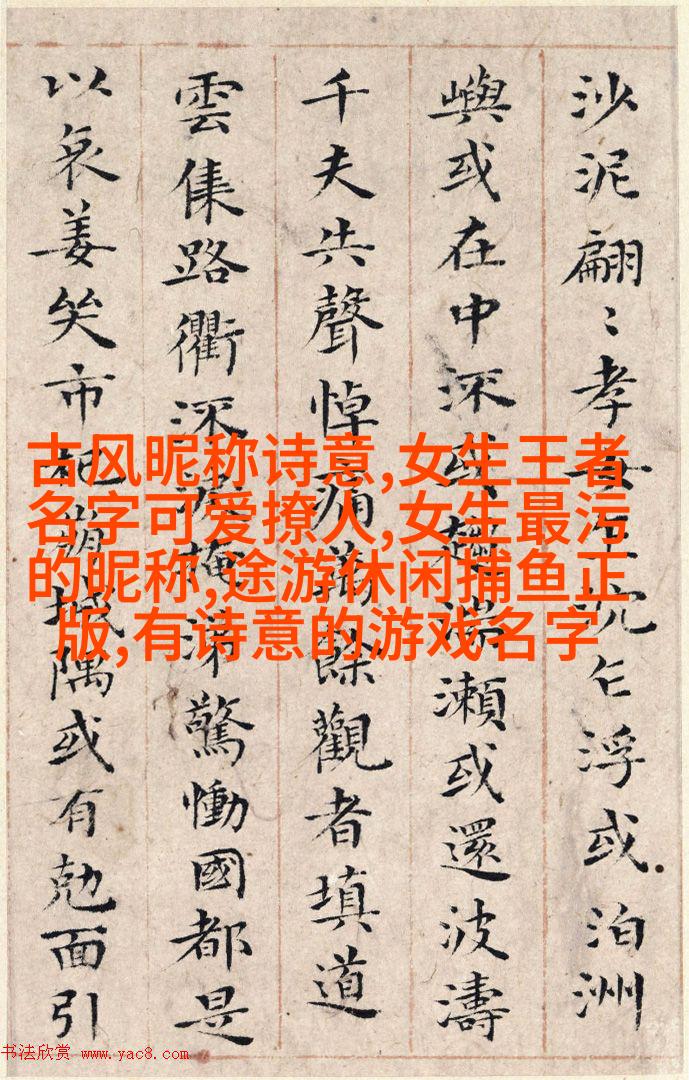 沙泥翩〻孝女乍沉乍浮或泊洲
嶼或在中深或趨湍瀨或還波濤
千夫共聲悼痛萬餘觀者填道
雲集路衢流淚掩涕驚慟國都是
以哀姜哭市杞崩城隅或有尅面引
古风昵称诗意,女生王者
名字可爱撩人,女生最污
的昵称,途游休闲捕鱼正
版,有诗意的游戏名字
书法欣赏 www.yac8.com